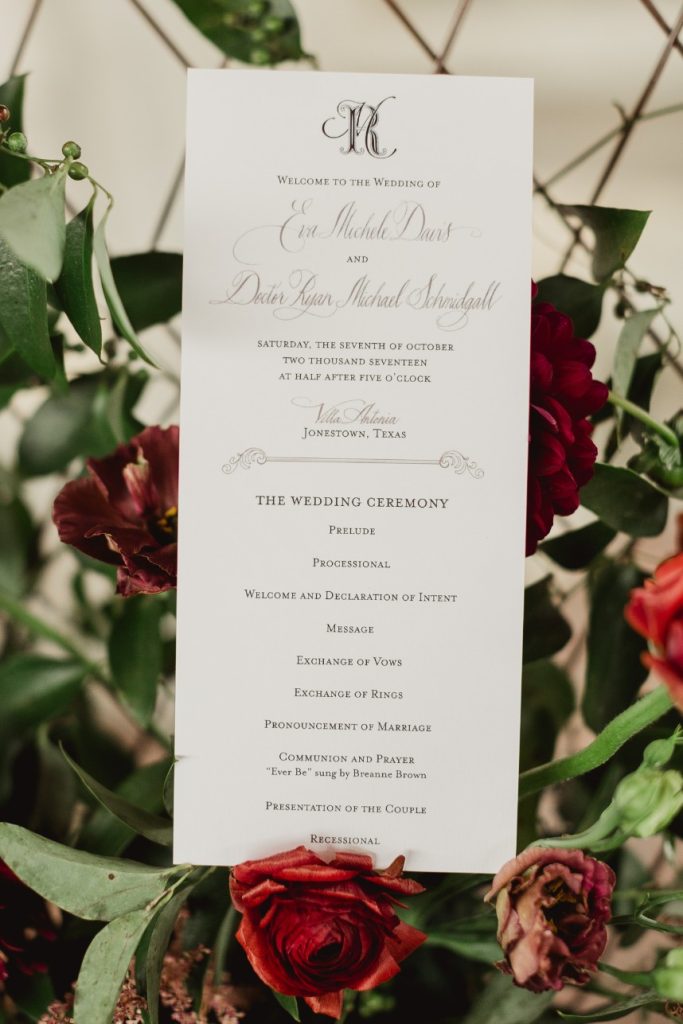 WELCOME TO THE WEDDING OF
Eva Michele Davis
AND
Doctor Ryan Michael Schmidgall
SATURDAY, THE SEVENTH OF OCTOBER
TWO THOUSAND SEVENTEEN
AT HALF AFTER FIVE O'CLOCK
Villa Antonia
JONESTOWN, TEXAS
THE WEDDING CEREMONY
PRELUDE
PROCESSIONAL
WELCOME AND DECLARATION OF INTENT
MESSAGE
EXCHANGE OF VOWS
EXCHANGE OF RINGS
PRONOUNCEMENT OF MARRIAGE
COMMUNION AND PRAYER
"Ever Be" sung by Breanne Brown
PRESENTATION OF THE COUPLE
RECESSIONAL